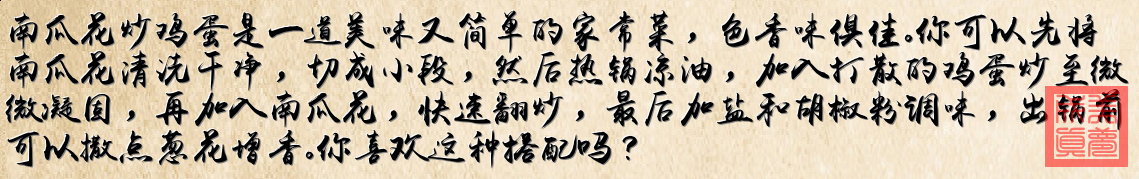 南瓜花炒鸡蛋是一道美味又简单的家常菜，色香味俱佳。你可以先将
南瓜花清洗干净，切成小段，然后热锅凉油，加入打散的鸡蛋炒至微
微凝固，再加入南瓜花，快速翻炒，最后加盐和胡椒粉调味，出锅前
可以撒点葱花增香。你喜欢这种搭配吗？